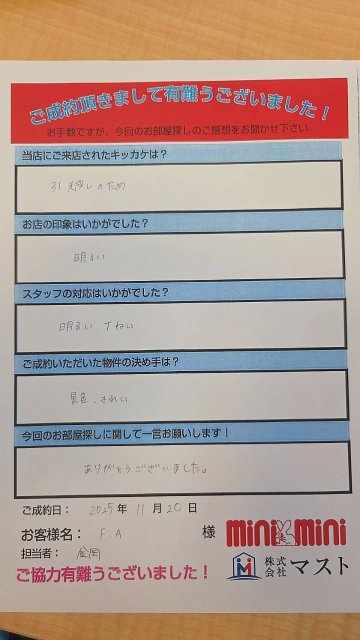 ご成約頂きまして有難うございました！
お手数ですが、今回のお部屋探しのご感想をお聞かせ下さい。
当店にご来店されたキッカケは？
引越しのため
お店の印象はいかがでした？
明るい
スタッフの対応はいかがでした？
明るい 丁ねい
ご成約いただいた物件の決め手は？
景色、きれい
今回のお部屋探しに関して一言お願いします！
ありがとうございました。
ご成約日： 2025年 11月 20日
お客様名： F.A 様
担当者： 金岡
ご協力有難うございました！
mini mini
株式会社 マスト